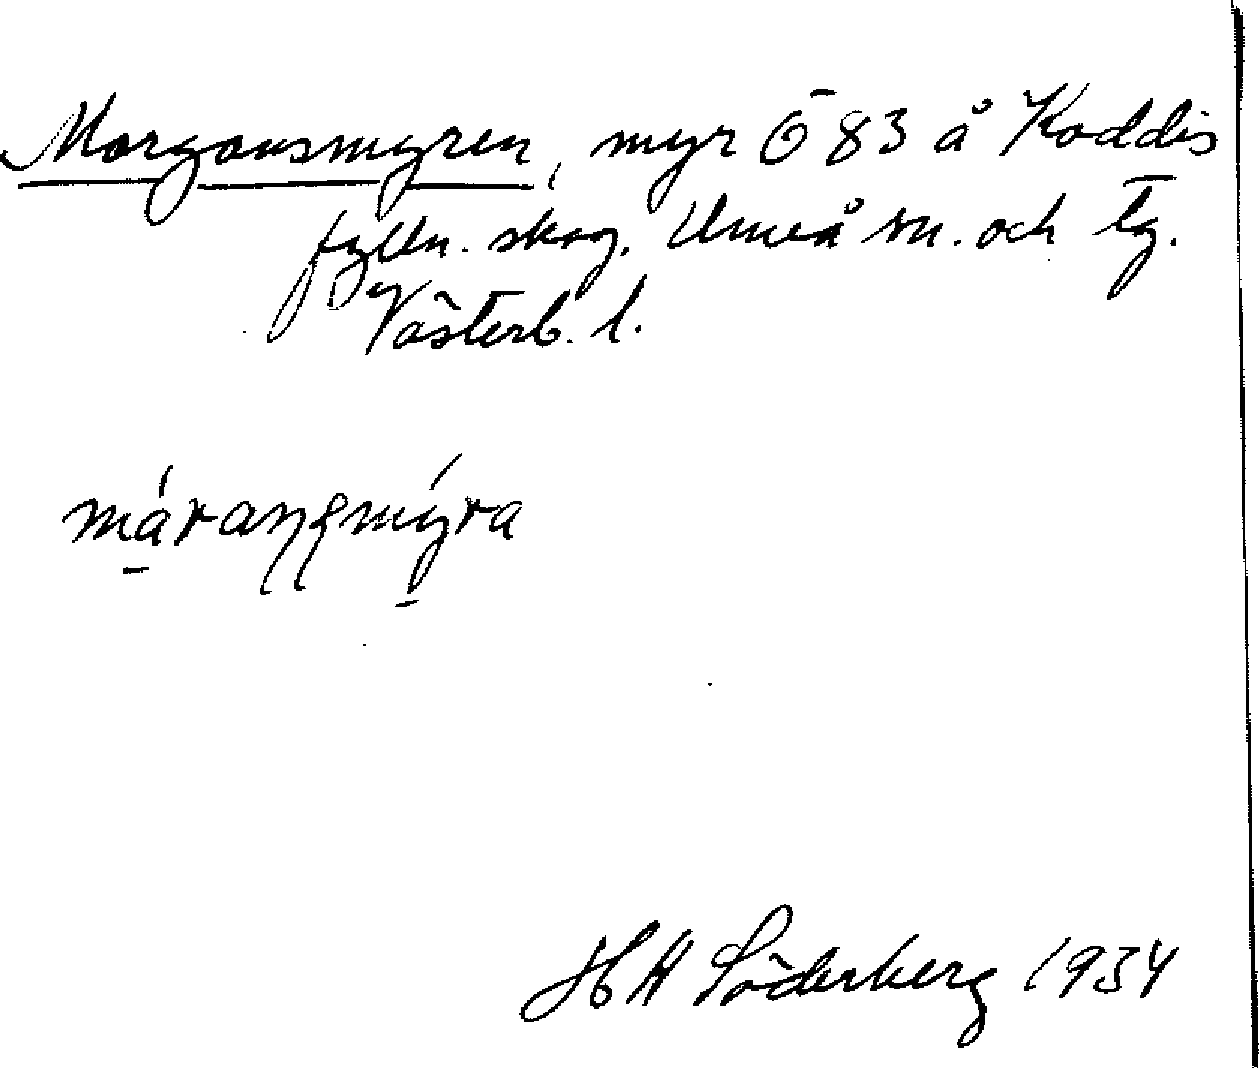 Morgonsmyren, myr Ö 83 å Koddis
fylln. skog. Umeå sn. och tg.
Västerb. l.
H H Söderberg 1934